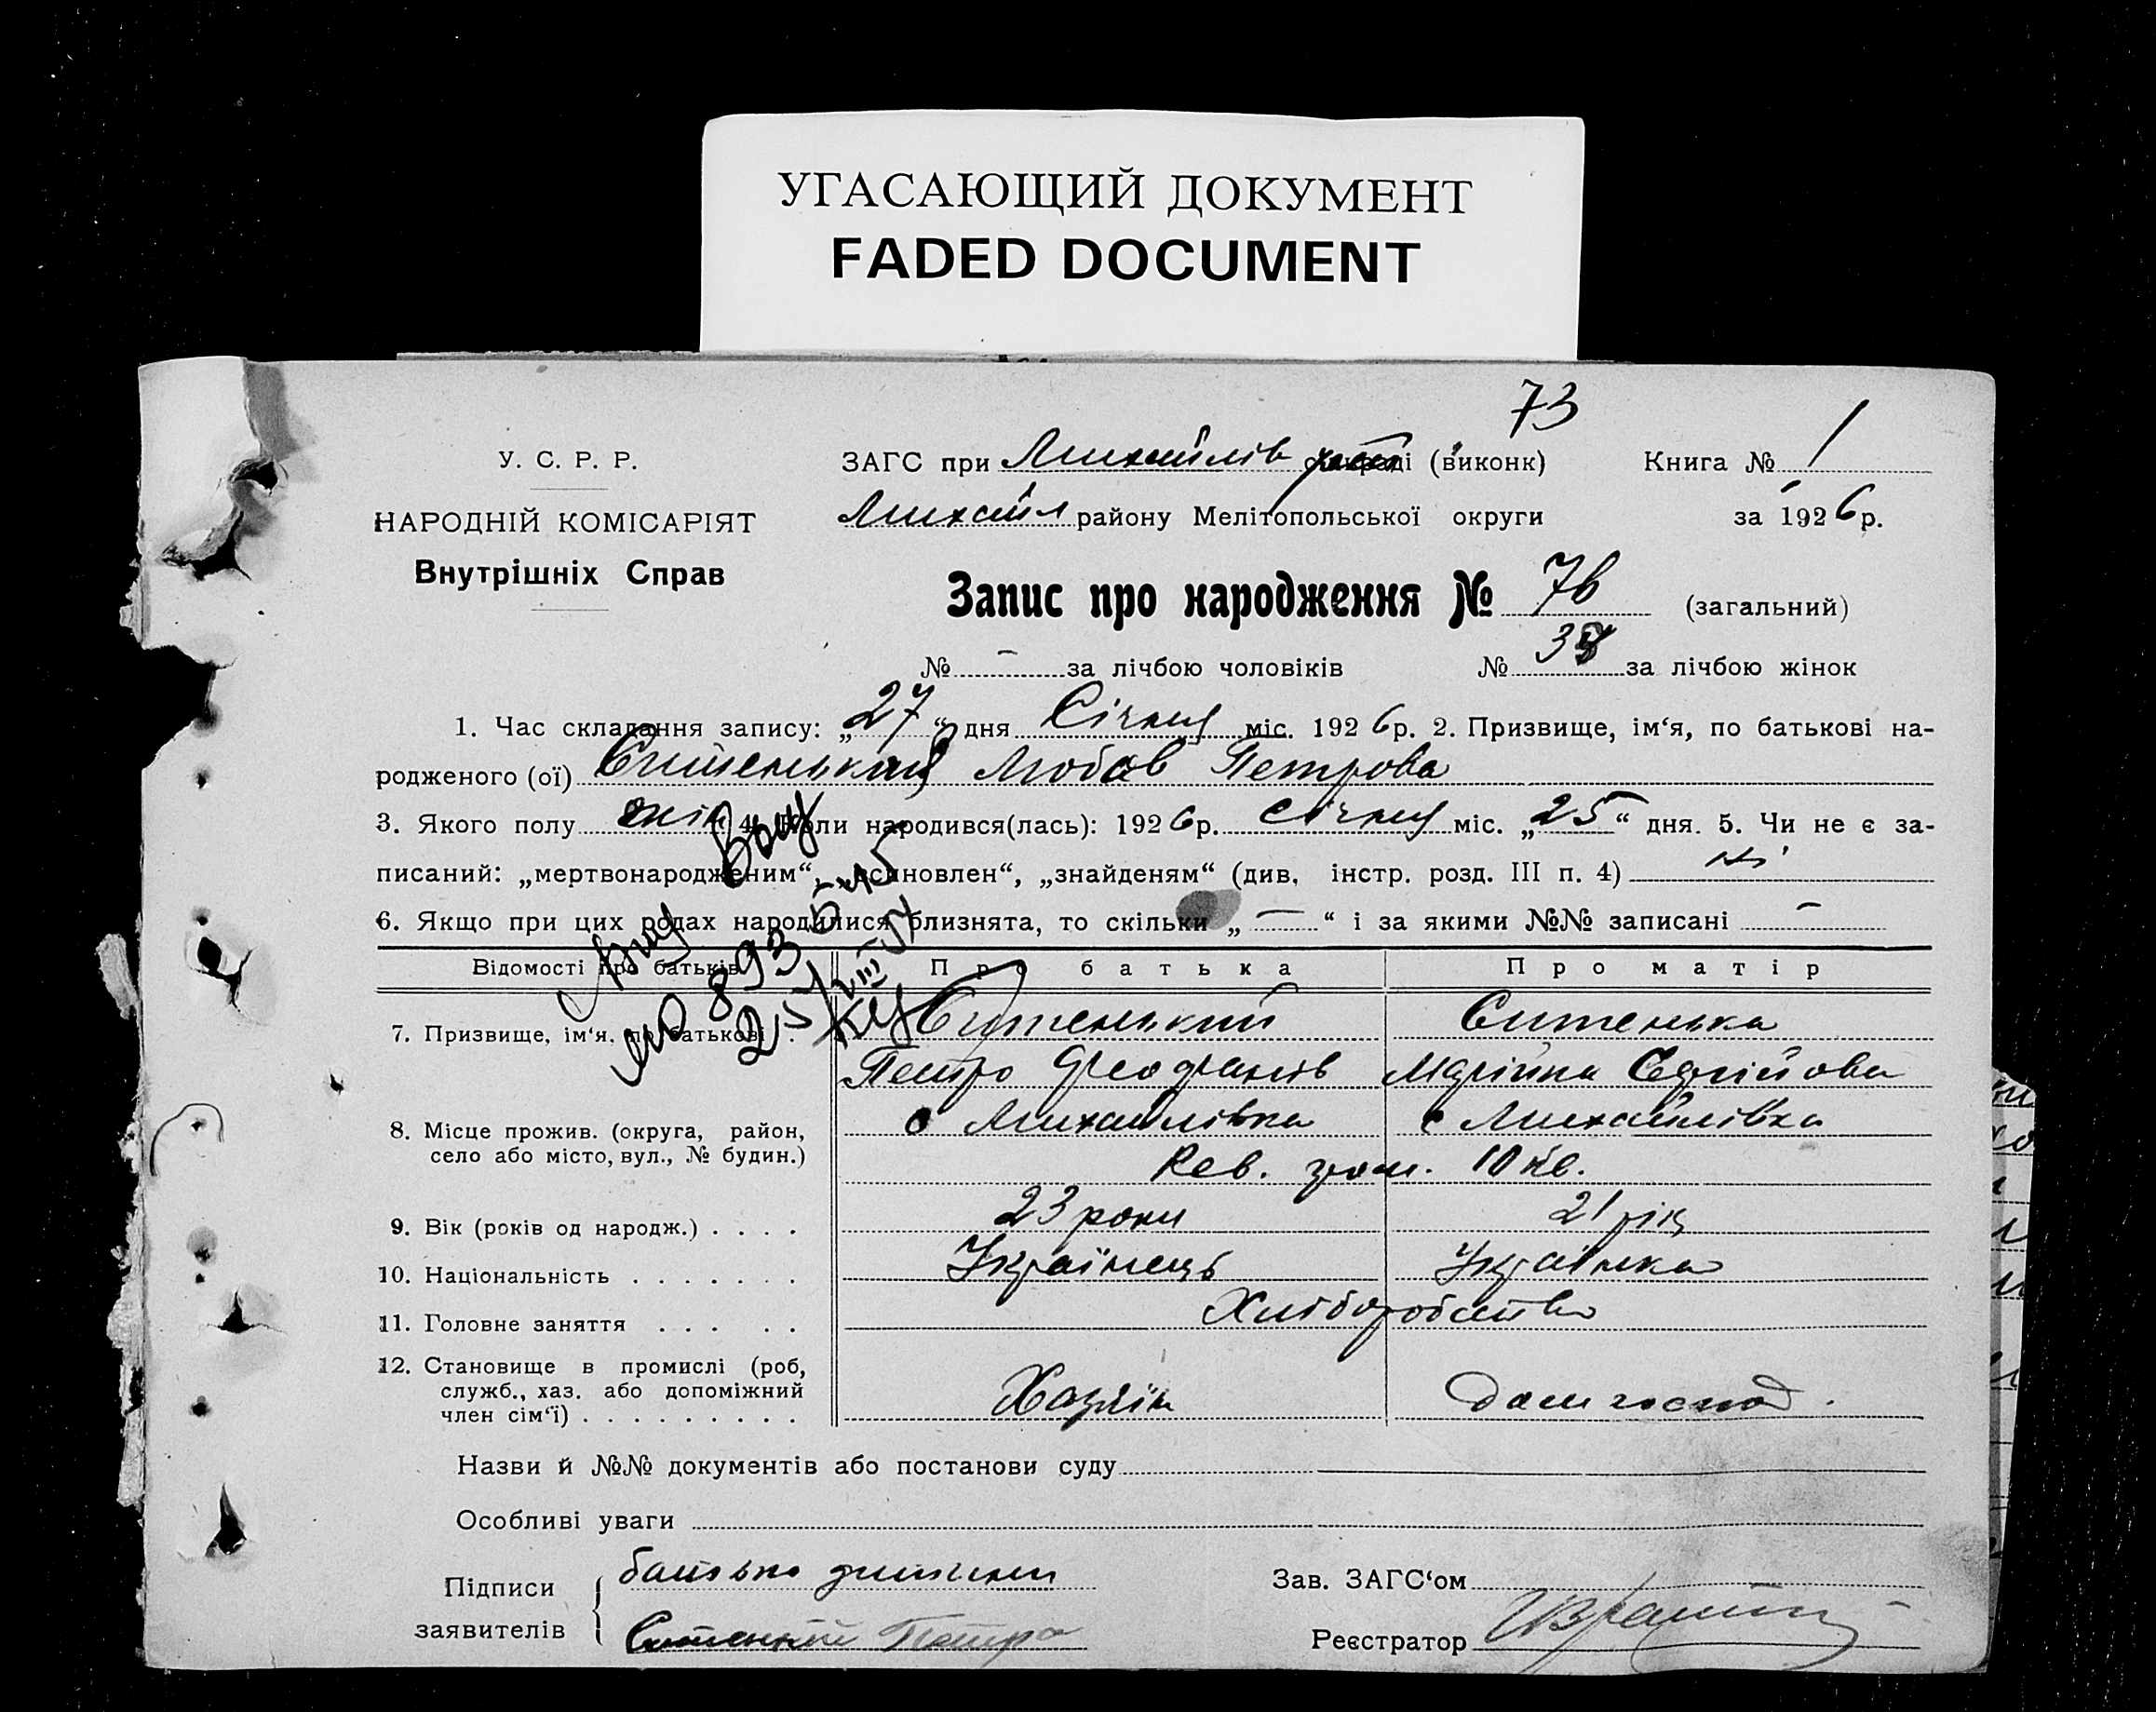 УГАСАЮЩИЙ ДОКУМЕНТ
FADED DOCUMENT
73
У. С. Р. Р.
ЗАГС при Михайлів (виконк)
Книга № 1
НАРОДНІЙ КОМІСАРІЯТ
Михайл району Мелітопольської округи
за 1926р.
Внутрішніх Справ
Запис про народження № 76 (загальний)
№ — за лічбою чоловіків № 38 за лічбою жінок
1. Час складання запису: „27“ дня Січня міс. 1926р. 2. Призвище, ім‘я, по батькові на-
родженого (ої) Ситенькая Любов Петрова
3. Якого полу жін 4. Коли народився(лась): 1926р. січня міс. „25“ дня. 5. Чи не є за-
писаний: „мертвонародженим“, „всиновлен“, „знайденям“ (див. інстр. розд. III п. 4) ні
6. Якщо при цих родах народилися близнята, то скільки „ — “ і за якими №№ записані —
Відомості про батьків
Про батька
Про матір
7. Призвище, ім‘я, по батькові .
Ситенький
Ситенька
Петро Феофанів
Марійка Сергійова
8. Місце прожив. (округа, район,
село або місто, вул., № будин.)
с Михайлівка
с Михайлівка
Рев. гром. 10 кв.
9. Вік (років од народж.) . . . .
23 роки
21 рік
10. Національність . . . . . . .
Українець
Українка
11. Головне заняття . . . . .
Хліборобство
12. Становище в промислі (роб,
служб., хаз. або допоміжний
член сім‘ї) . . . . . . . . .
Хазяїн
дом господ.
Назви й №№ документів або постанови суду
Особливі уваги
Підписи
заявителів
батько дитини
Ситенький Петро
Зав. ЗАГС‘ом
Реєстратор